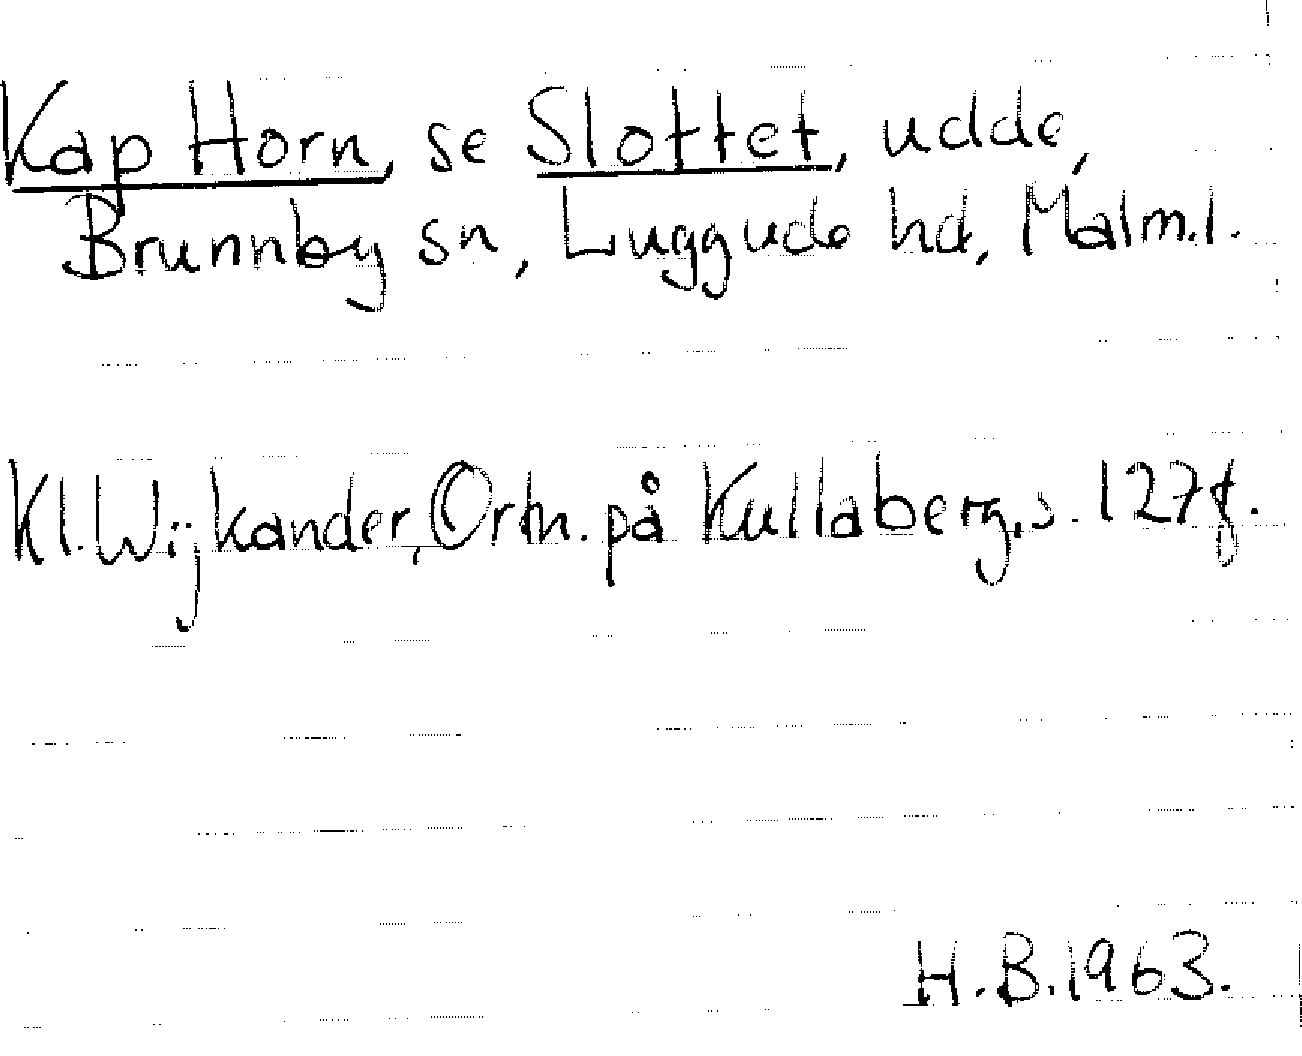 Kap Horn, se Slottet, udde,
Brunnby sn, Luggude hd, Malm.l.
Kl. Wijkander, Ortn. på Kullaberg, s. 127f.
H.B. 1963.